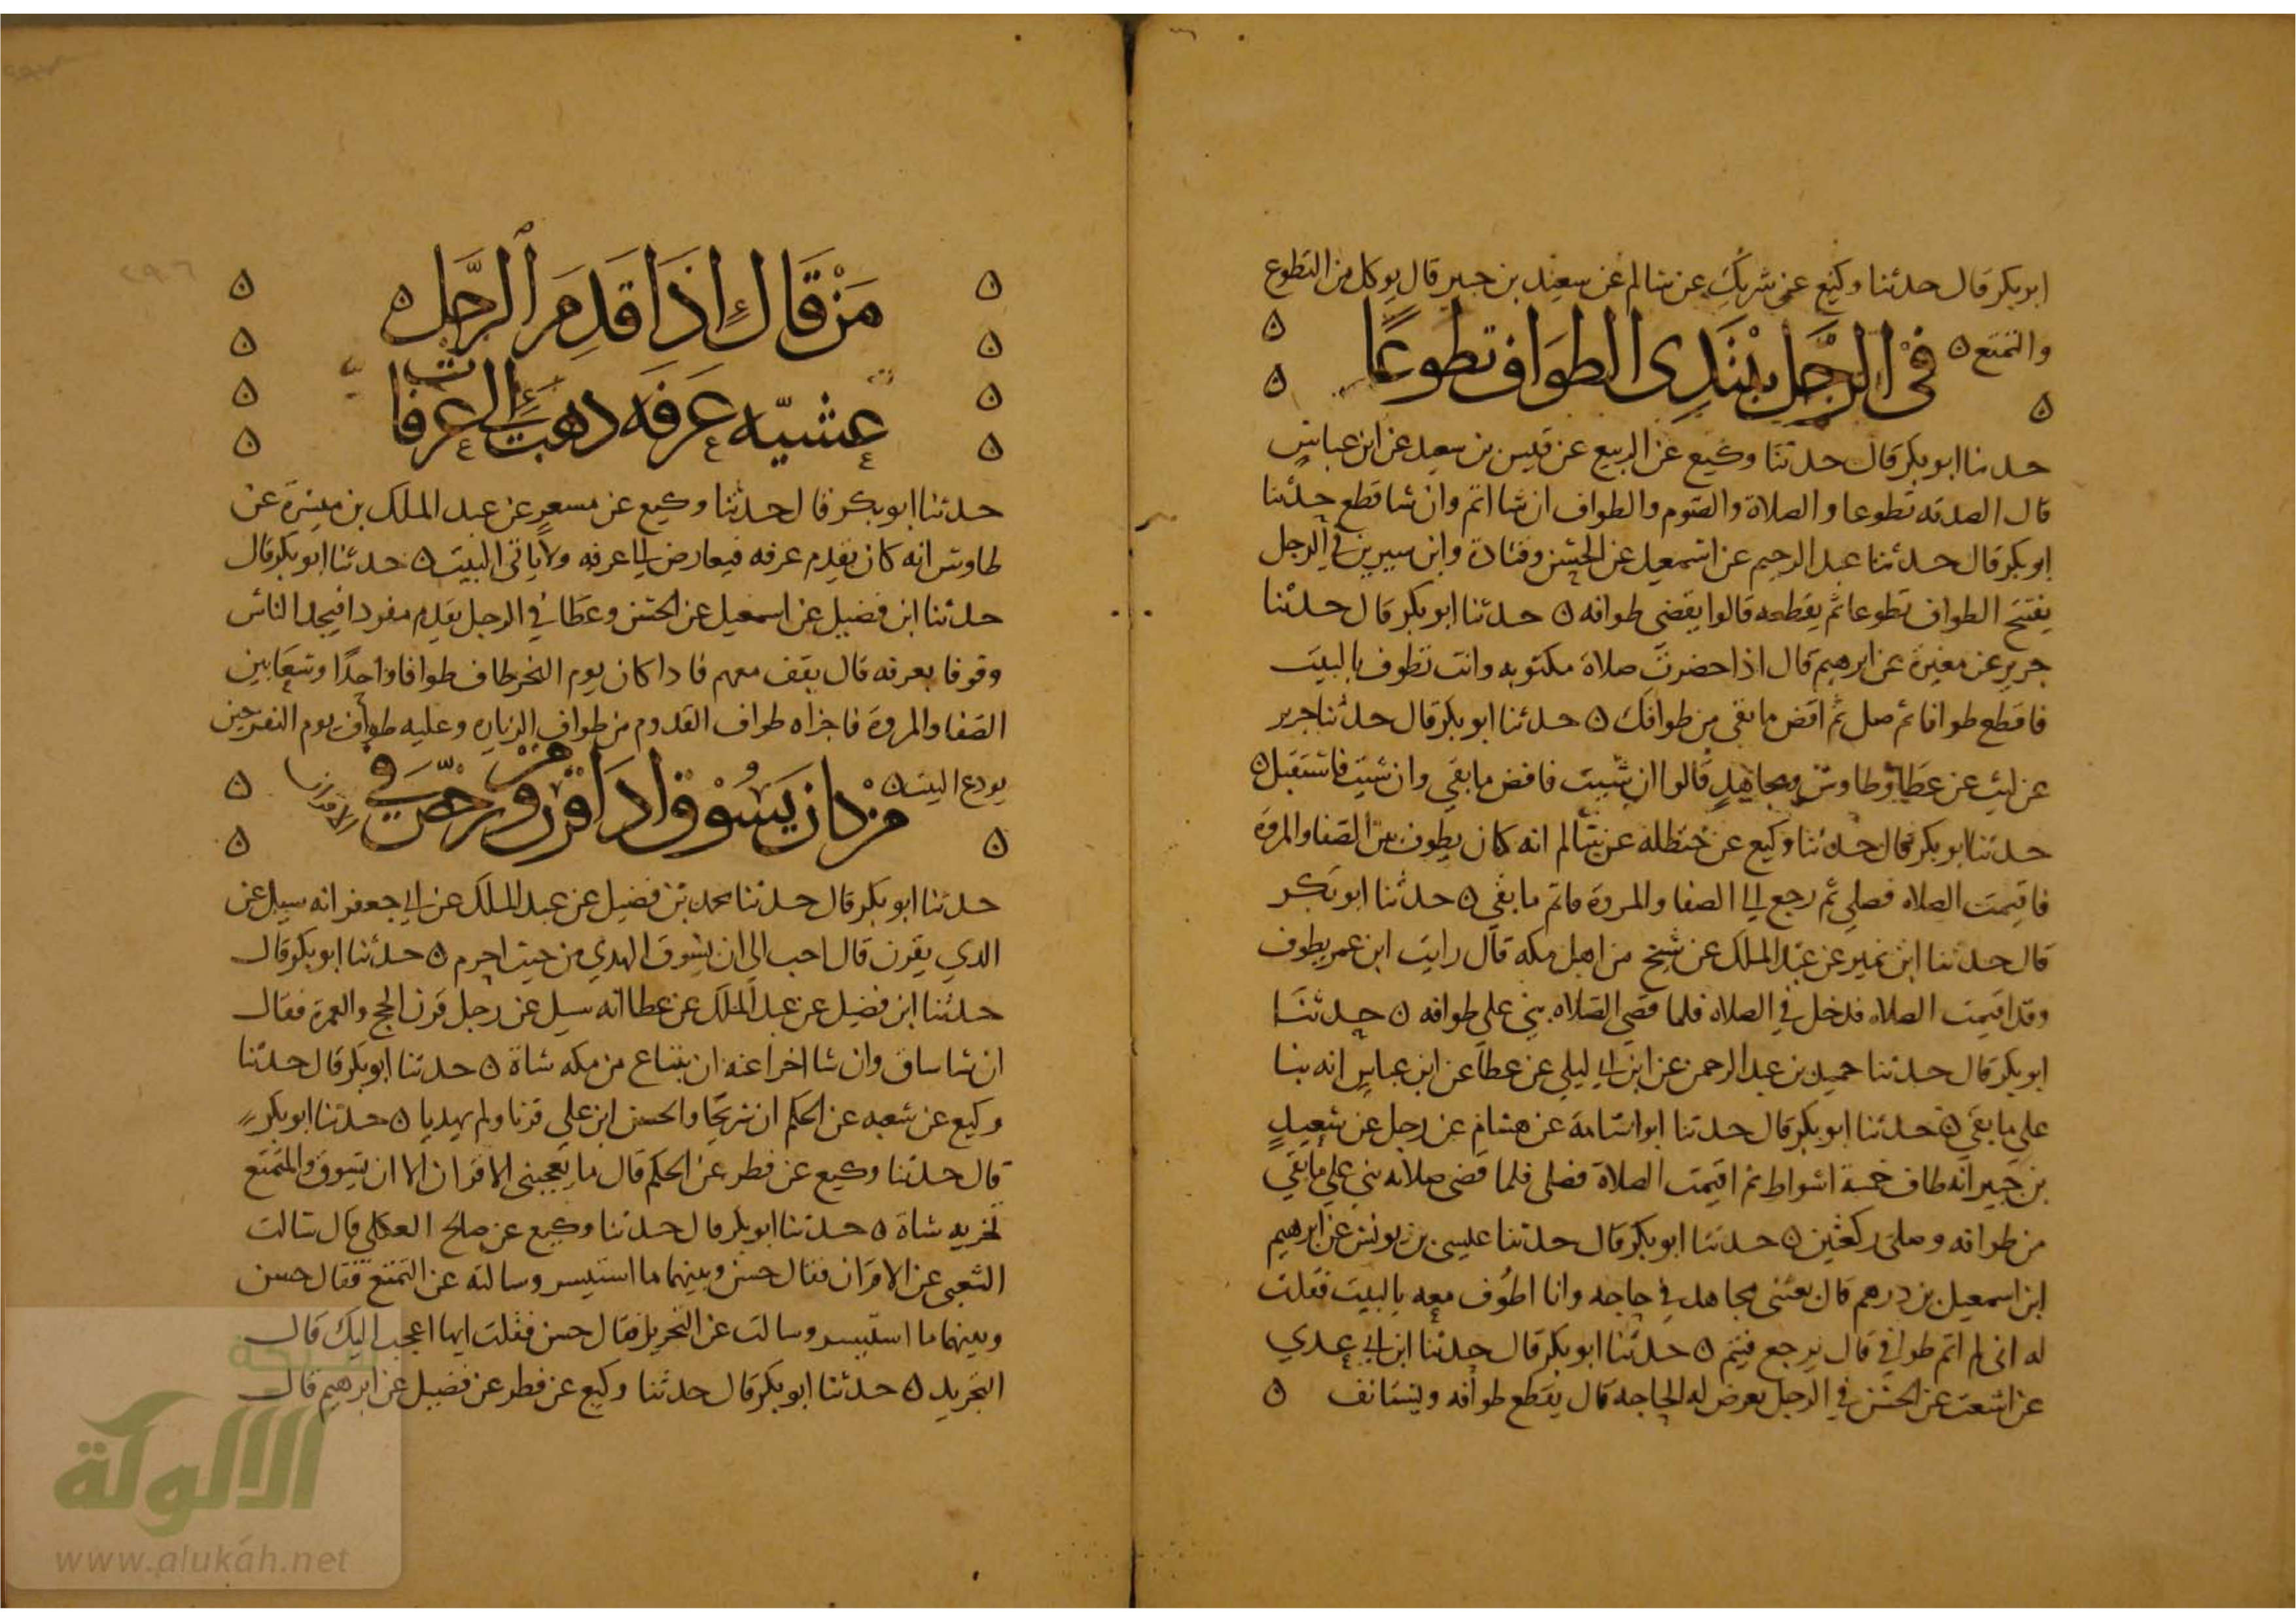 ابوبكر قال حدثنا وكيع عن شريك عن سالم عن سعيد بن جبير قال يوكل من التطوع
والتمتع ه
في الرجل يبتدى الطواف تطوعا
حدثنا ابوبكر قال حدثنا وكيع عن الربيع عن قيس بن سعيد عن ابن عباس
قال الصدقه تطوعا والصلاة والصوم والطواف ان شا اتم وان شا قطع حدثنا
ابو بكر قال حدثنا عبد الرحيم عن اسمعيل عن الحسن وقتادة وابن سيرين في الرجل
يفتتح الطواف تطوعا ثم يقطعه قالوا يقضي طوافه ه حدثنا ابو بكر قال حدثنا
جرير عن مغيرة عن ابرهيم قال اذا حضرت صلاة مكتوبه وانت تطوف بالبيت
فاقطع طوافا ثم صل ثم اقض ما بقي من طوافك ه حدثنا ابو بكر قال حدثنا جرير
عن ليث عن عطا وطاوس ومجاهد قالوا ان شيت فاقض ما بقي وان شيت فاستقبل ه
حدثنا ابو بكر قال حدثنا وكيع عن حنظله عن سالم انه كان يطوف بين الصفا والمروة
فاقيمت الصلاه فصلى ثم رجع الى الصفا والمروة فاتم ما بقي ه حدثنا ابو بكر
قال حدثنا ابن نمير عن عبد الملك عن شيخ من اهل مكه قال رايت ابن عمر يطوف
وقد اقيمت الصلاه فدخل في الصلاه فلما قضي الصلاه بني علي طوافه ه حدثنا
ابو بكر قال حدثنا حميد بن عبد الرحمن عن ابن ابي ليلي عن عطا عن ابن عباس انه بنا
علي ما بقي ه حدثنا ابو بكر قال حدثنا ابو اسامة عن هشام عن رجل عن سعيد
بن جبير انه طاف خمسة اشواط ثم اقيمت الصلاة فصلى فلما قضى صلاته بني علي ما بقي
من طوافه وصلى ركعتين ه حدثنا ابو بكر قال حدثنا عيسى بن يونس عن ابرهيم
ابن اسمعيل بن درهم قال بعثني مجاهد في حاجه وانا اطوف معه بالبيت فقلت
له اني لم اتم طوافي قال ترجع فيتم ه حدثنا ابو بكر قال حدثنا ابن ابي عدي
عن اشعث عن الحسن في الرجل يعرض له الحاجه قال يقطع طوافه ويستانف ه
من قال إذا قدم الرجل ه
عشيه عرفه ذهب الى عرفات
حدثنا ابو بكر قال حدثنا وكيع عن مسعر عن عبد الملك بن ميسرة عن
طاوس انه كان يقدم عرفه فيعارض الى عرفه ولا ياتي البيت ه حدثنا ابو بكر قال
حدثنا ابن فضيل عن اسمعيل عن الحسن وعطا في الرجل يقدم مفردا فيجد الناس
وقوفا بعرفه قال يقف معهم فاذا كان يوم النحر طاف طوافا واحدا وسعا بين
الصفا والمروة فاجزاه طواف القدوم من طواف الزياره وعليه طواف يوم النفر حين
يودع البيت ه
من كان يسوق اذا قرن ومن رخص في
حدثنا ابو بكر قال حدثنا محمد بن فضيل عن عبد الملك عن ابي جعفر انه سيل عن
الذي يقرن قال احب الى ان يسوق الهدي من حيث احرم ه حدثنا ابو بكر قال
حدثنا ابن فضيل عن عبد الملك عن عطا انه سيل عن رجل قرن الحج والعمرة فقال
ان شا ساق وان شا اخرا عنه ان يبتاع من مكه شاة ه حدثنا ابو بكر قال حدثنا
وكيع عن شعبه عن الحكم ان شريحا والحسن ابن علي قرنا ولم يهديا ه حدثنا ابو بكر
قال حدثنا وكيع عن فطر عن الحكم قال ما يعجبني الاقران الا ان يسوق والمتمتع
تجزيه شاة ه حدثنا ابو بكر قال حدثنا وكيع عن صالح العكلي قال سالت
الشعبي عن الاقران فقال حسن وبينهما ما استيسر وسالته عن التمتع فقال حسن
وبينهما ما استيسر وسالت عن التجريد فقال حسن فقلت ايها اعجب اليك قال
التجريد ه حدثنا ابو بكر قال حدثنا وكيع عن فطر عن فضيل عن ابرهيم قال
شبكة
الألوكة
www.alukah.net